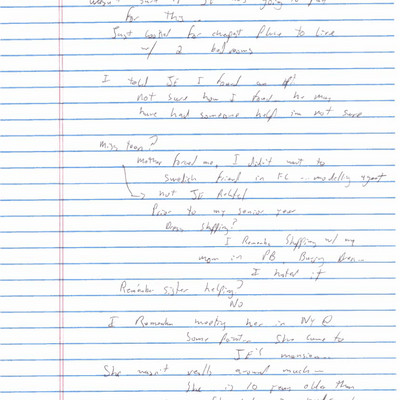 for this..
Just looked for cheapest place to live
w/ 2 bedrooms
I told JE I found an
not sure how I found, he may
have had someone help im not sure
Miss teen?
Mother forced me, I didn't want to
Swedish friend in FC - modeling agent
not JE Related
Prior to my senior year
Dress Shopping?
I Remember Shopping w/ my
mom in PB. Buying Dress.
I hated it
Remember sister helping?
No
I Remember meeting her in NY @
some point. She came to
JE's mansion.
She wasn't really around much
She is 10 years older than